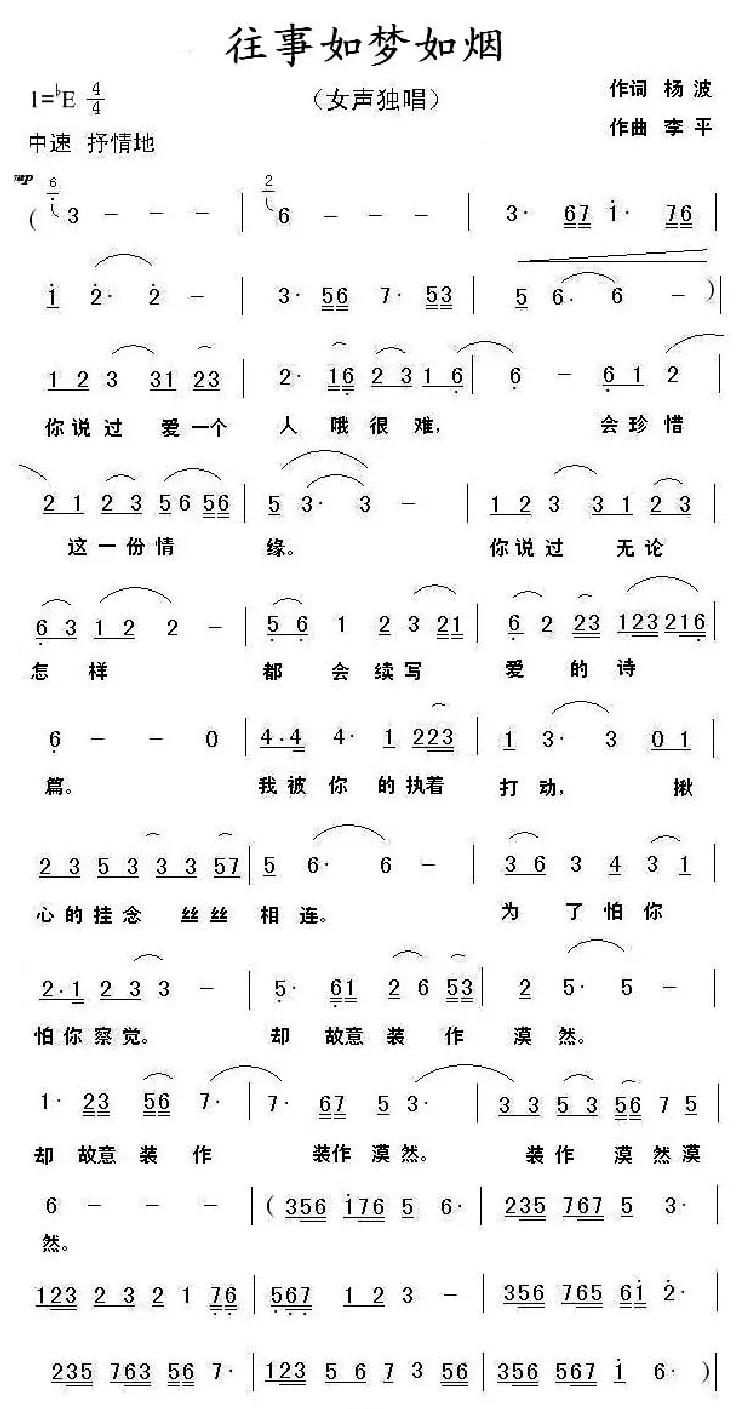 往事如梦如烟
1=♭E 4/4 （女声独唱） 作词 杨 波
中速 抒情地 作曲 李 平
mp
( 6 i 3 - - - | 2 6 - - - | 3· 67 i· 76 |
i 2· 2 - | 3· 56 7· 53 | 5 6· 6 - ) |
1 2 3 31 23 | 2· 16 2 3 1 6 | 6 - 6 1 2 |
你 说 过 爱 一 个 人 哦 很 难， 会 珍 惜
2 1 2 3 5 6 56 | 5 3· 3 - | 1 2 3 3 1 2 3 |
这 一 份 情 缘。 你 说 过 无 论
6 3 1 2 2 - | 5 6 1 2 3 21 | 6 2 23 123 216 |
怎 样 都 会 续 写 爱 的 诗
6 - - 0 | 4·4 4· 1 223 | 1 3· 3 0 1 |
篇。 我 被 你 的 执 着 打 动， 揪
2 3 5 3 3 3 57 | 5 6· 6 - | 3 6 3 4 3 1 |
心 的 挂 念 丝 丝 相 连。 为 了 怕 你
2·1 2 3 3 - | 5· 61 2 6 53 | 2 5· 5 - |
怕 你 察 觉。 却 故 意 装 作 漠 然。
1· 23 56 7· | 7· 67 5 3· | 3 3 5 3 56 7 5 |
却 故 意 装 作 装 作 漠 然。 装 作 漠 然 漠
6 - - - | ( 356 i76 5 6· | 235 767 5 3· |
然。
123 2 3 2 1 76 | 567 1 2 3 - | 356 765 6i 2· |
235 763 56 7· | 123 5 6 7 3 56 | 356 567 i 6· ) |